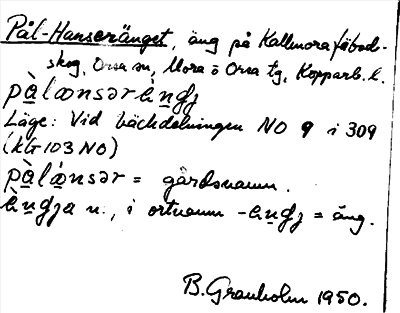 Pål-Hanseränget, äng på Kallmora fäbod-
skog, Orsa sn, Mora o Orsa tg, Kopparb. l.
pàlånsərèngʒ
Läge: Vid bäckdelningen NO 9 i 309
(kG 103 NO)
pàlánsər = gårdsnamn.
èngʒa n., i ortnamn -engʒ = äng.
B. Granholm 1950.